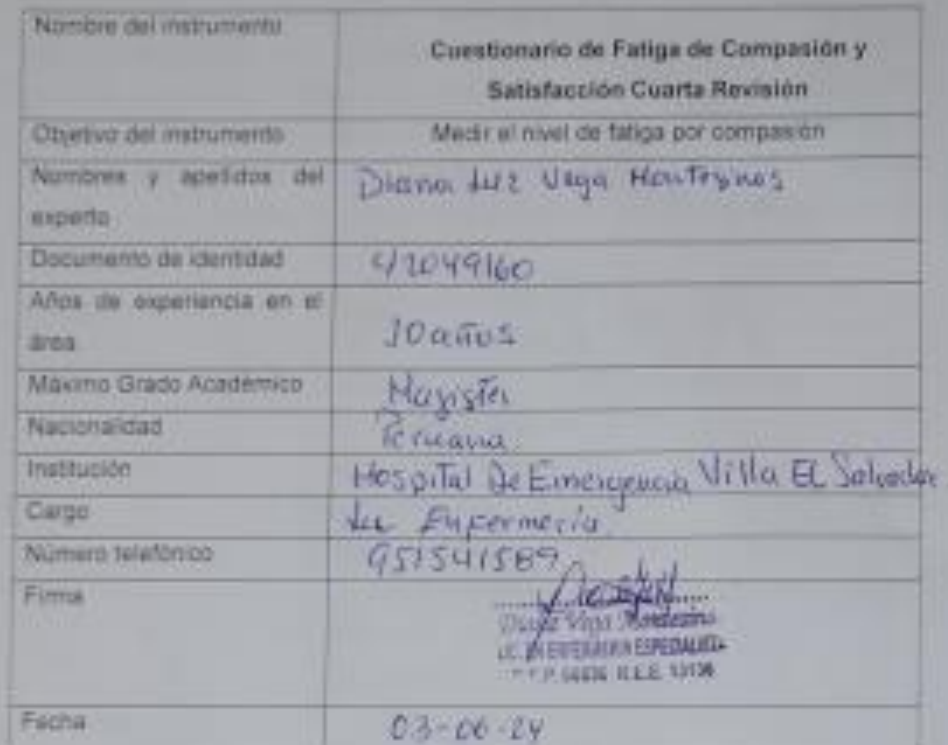 Nombre del instrumento
Cuestionario de Fatiga de Compasión y
Satisfacción Cuarta Revisión
Objetivo del instrumento
Medir el nivel de fatiga por compasión
Nombres y apellidos del
experto
Diana Luz Vega Montesinos
Documento de identidad
Años de experiencia en el
área
10 años
Máximo Grado Académico
Magister
Nacionalidad
Peruana
Institución
Hospital De Emergencia Villa EL Salvador
Cargo
Enfermería
Número telefónico
951541589
Firma
LIC. EN ENFERMERIA ESPECIALISTA
Fecha
03-06-24